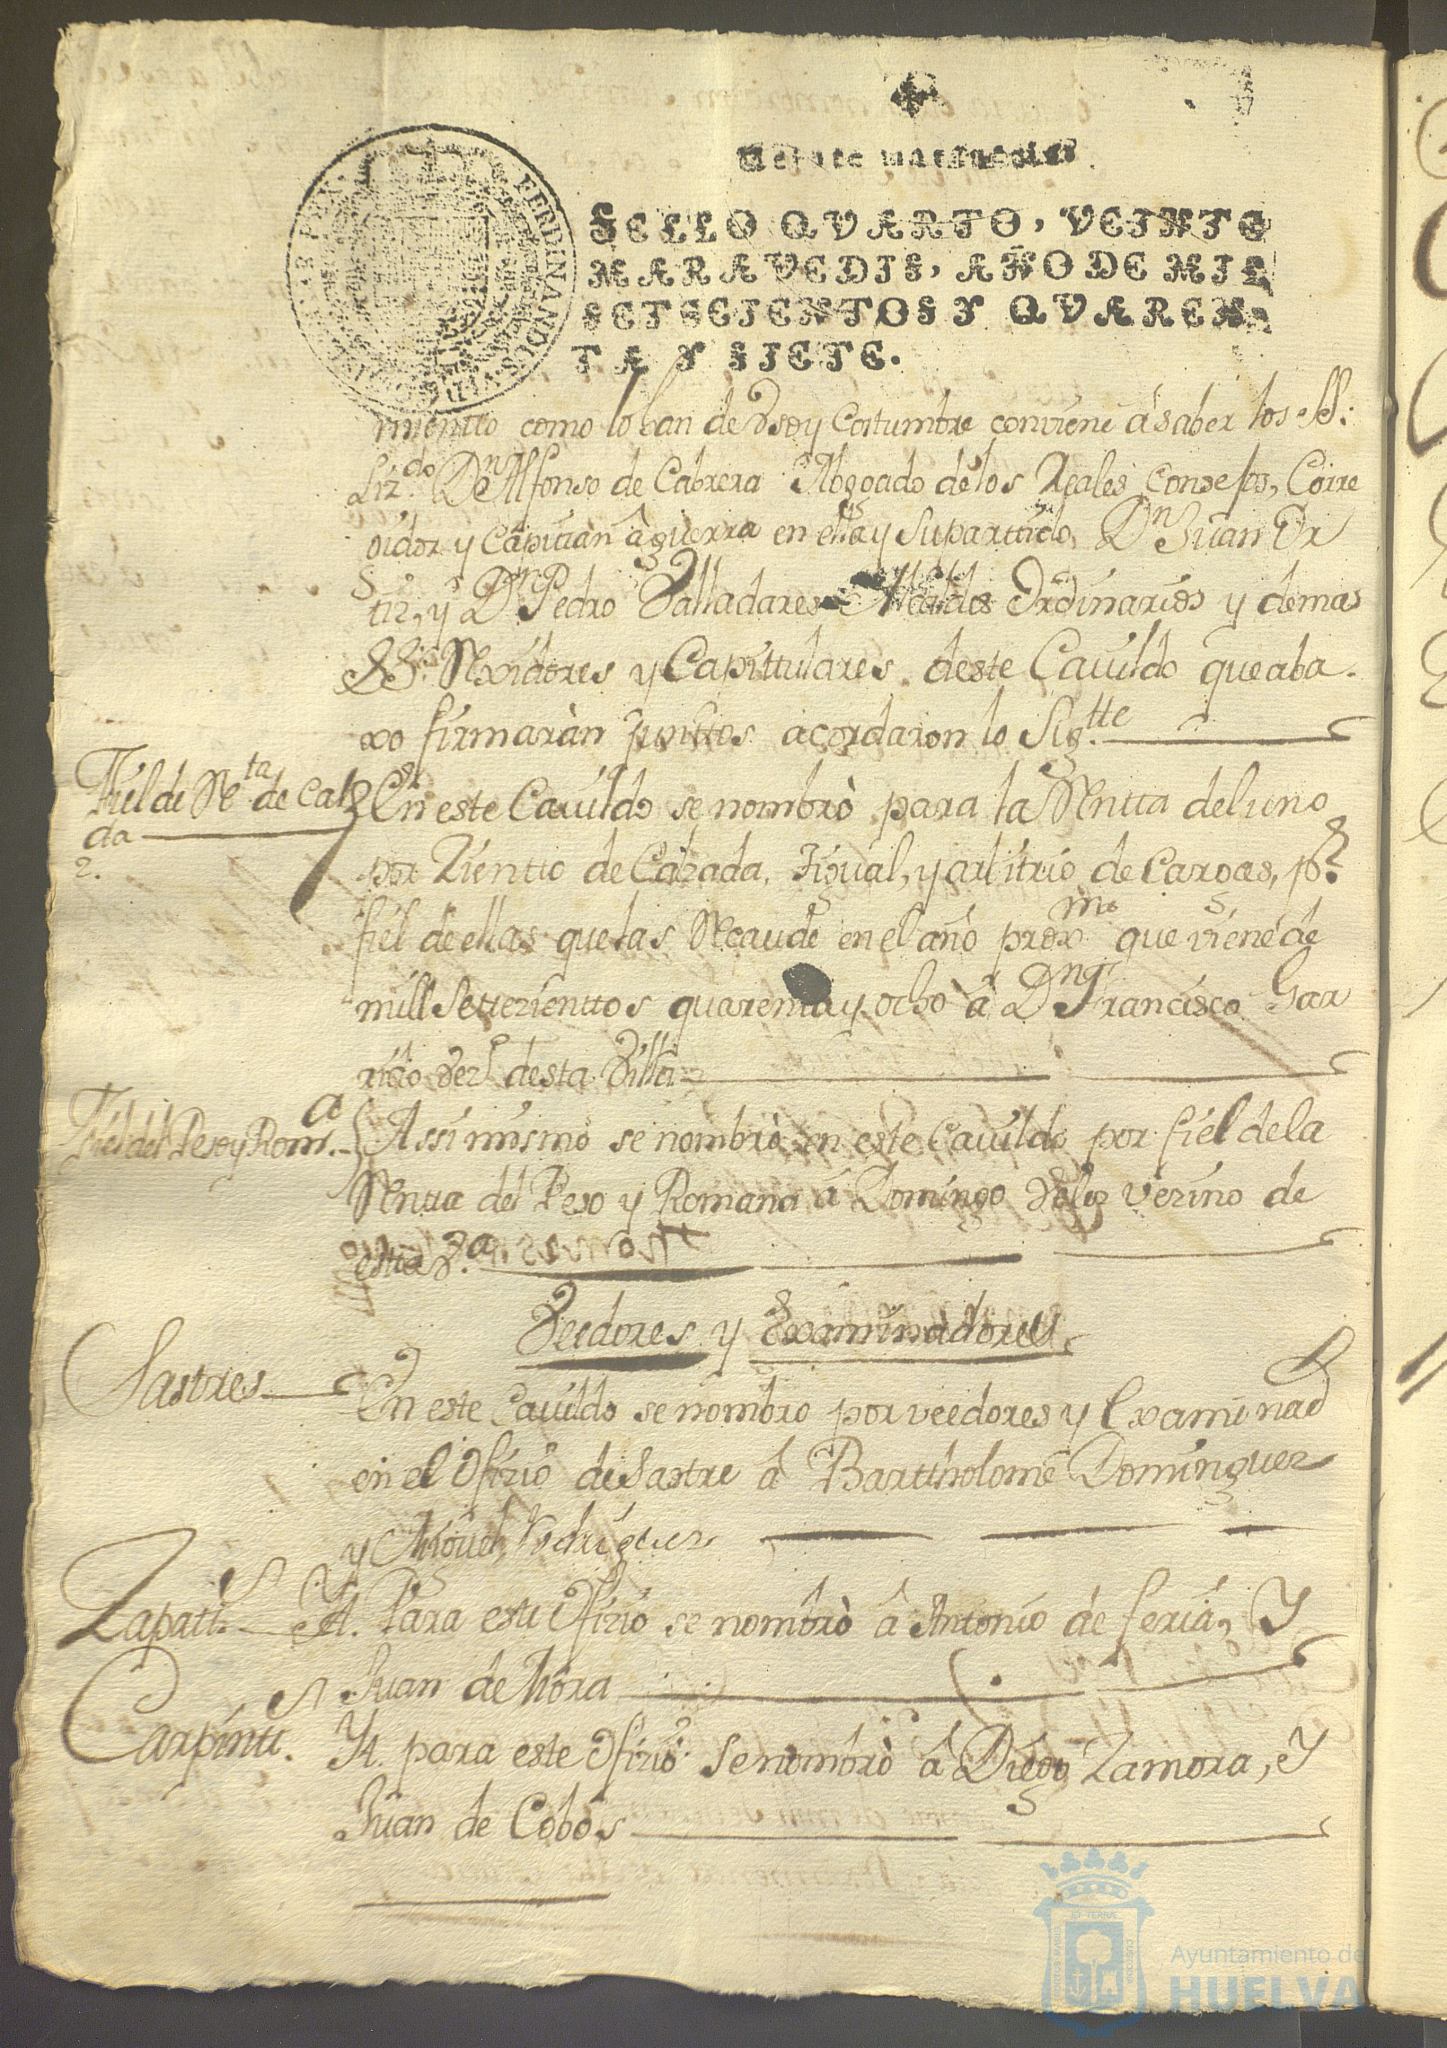 Veinte maravedis.
SELLO QVARTO, VEINTE
MARAVEDIS, AÑO DE MIL
SETECIENTOS Y QVAREN-
TA Y SIETE.
FERDINANDUS
miento como lo han de Vso y Costumbre conviene â saber los SS.
Liz.do Dn Alfonso de Cabrera Abogado de los Reales Consejos, Corre
gidor y Capitan â guerra en ella y su partido, Dn Juan Or
tiz, y Dn Pedro Valladares Alcaldes Ordinarios y demas
SS.es Rexidores y Capittulares deste Cavildo que aba
xo firmaràn juntos acordaron lo Sig.tte
Fiel de R.ta de Calz
da
2.
En este Cavildo se nombrò para la Rentta del uno
por Zientto de Calzada, Figual, y arbitrio de Cargas, p.r
fiel de ellas que las Recaude en el año prox.mo que viene de
mill settezienttos quarenta y ocho â Dn Francisco Gar
rido Vez.o desta Villa
Fiel del Peso y Rom.a
Assi mismo se nombrò en este Cavildo por fiel de la
Rentta del Peso y Romana â Domingo Velez vezino de
estta V.a
Veedores y Examinadores
Sastres
En este Cavildo se nombro por veedores y Examinad
en el Ofizio de Sastre â Barttholome Dominguez
y Miguel Rodriguez
Zapatt.s
Yt. Para este Ofizio se nombrò â Antonio de feria, Y
Juan de Mora
Carpintt.s
Yt. para este Ofizio se nombrò â Diego Zamora, Y
Juan de Cobos
Ayuntamiento de
HUELVA